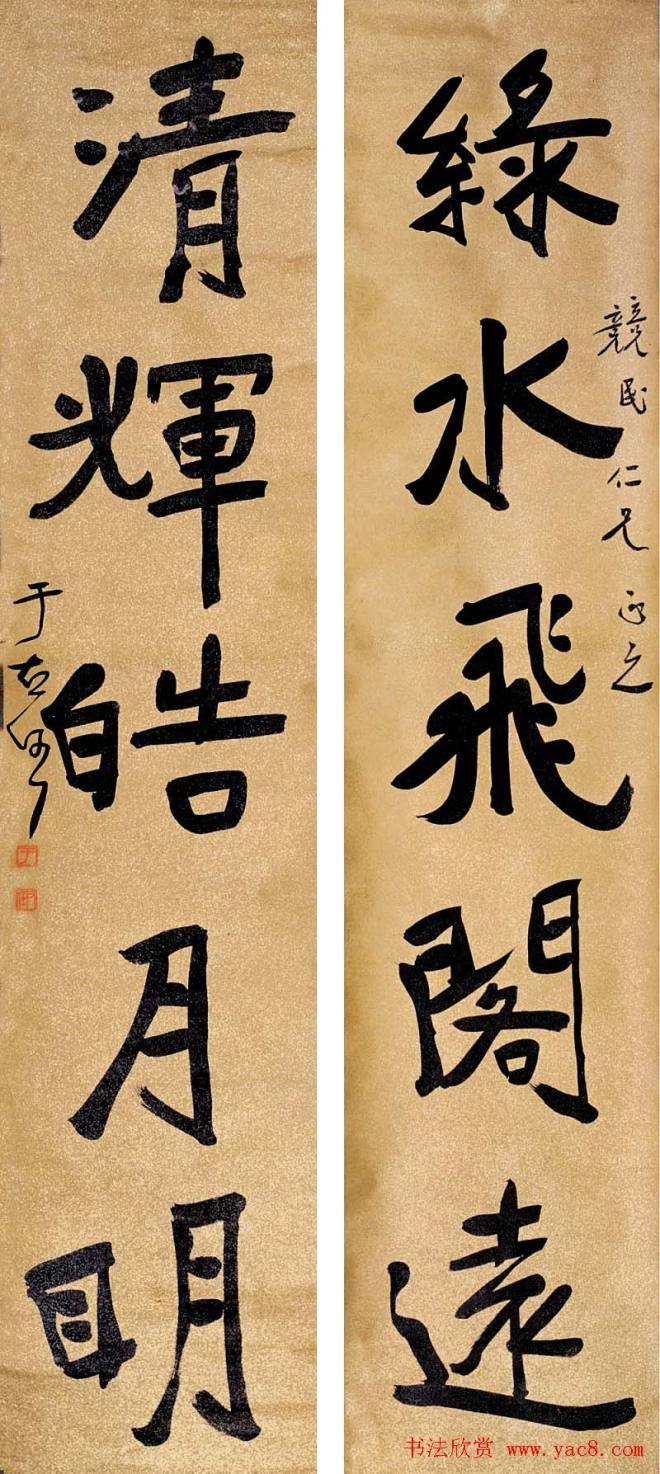 綠水飛閣遠
競民仁兄正之
清輝皓月明
于右任
书法欣赏 www.yac8.com